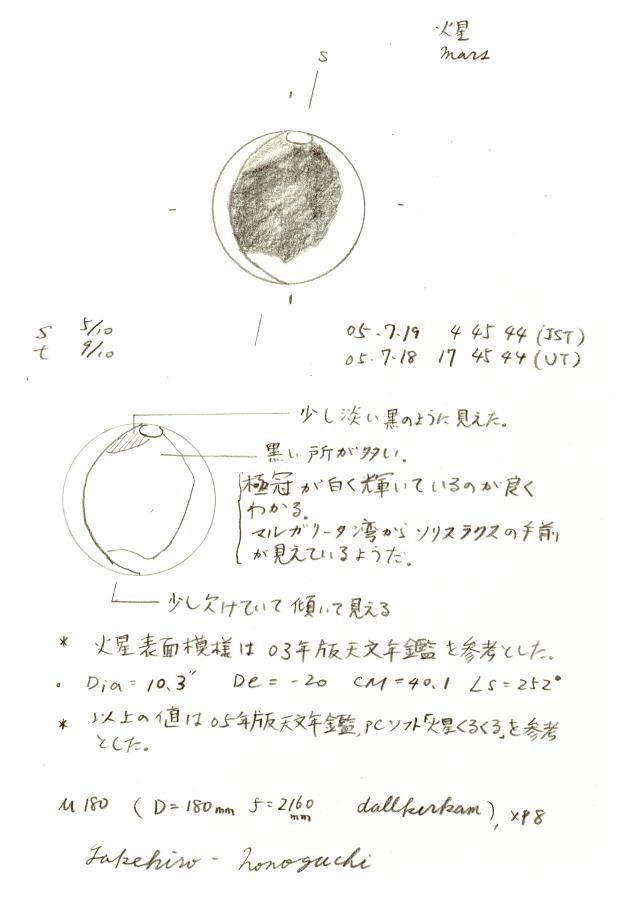 火星
mars
S
S 5/10
t 9/10
05.7.19 4 45 44 (JST)
05.7.18 17 45 44 (UT)
少し淡い黒のように見えた。
黒い所が多い。
極冠が白く輝いているのが良く
わかる。
マルガリータ湾からソリスラクスの手前
が見えているようだ。
少し欠けていて傾いて見える
* 火星表面模様は03年版天文年鑑を参考とした。
• Dia=10.3" De=-20 CM=40.1 Ls=252°
* 以上の値は05年版天文年鑑,PCソフト「火星くるくる」を参考
とした。
M180 (D=180mm f=2160mm dallkerkam), x98
Takehiro - honoguchi